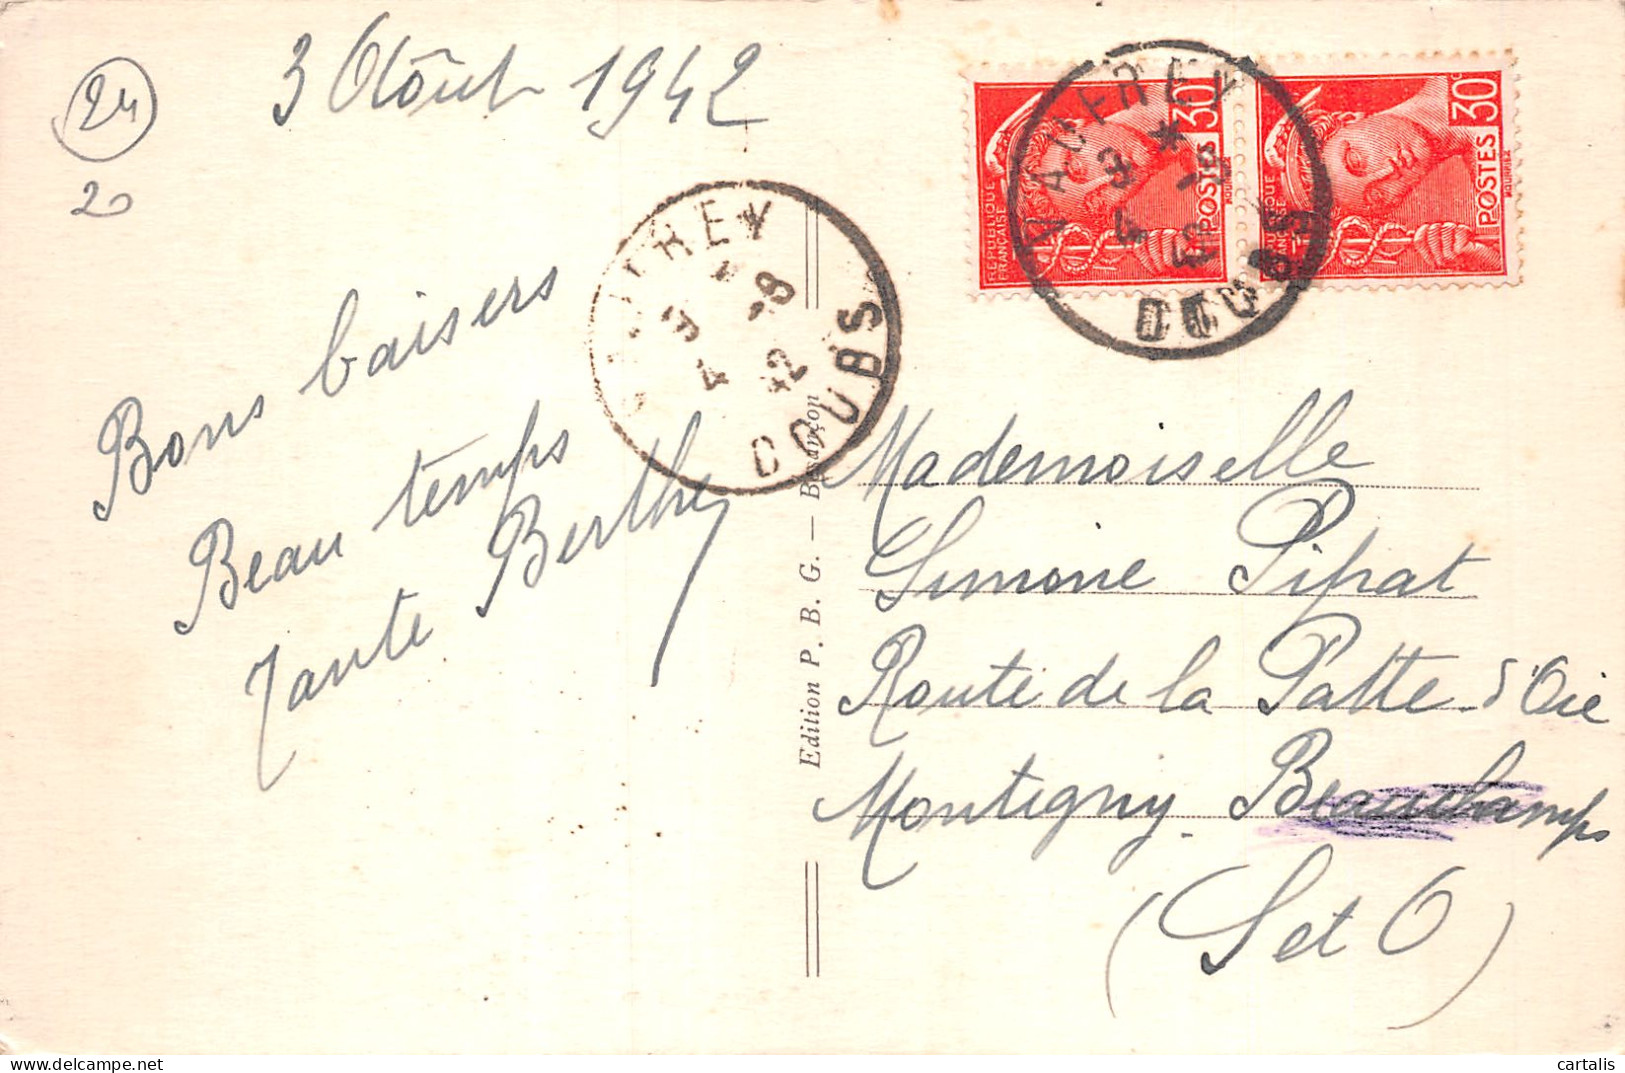 24
20
3 Août 1942
Bons baisers
Beau temps
Tante Berthe
VAUFREY
9 *
4 -8
42
DOUBS
VAUFREY
9 *
4 -8
42
DOUBS
RÉPUBLIQUE
FRANÇAISE
POSTES 30c
RÉPUBLIQUE
FRANÇAISE
POSTES 30c
Edition P. B. G. — Besançon
Mademoiselle
Simone Pipat
Route de la Patte d'Oie
Montigny. Beauchamps
(S et O)
cartalis
delcampe.net